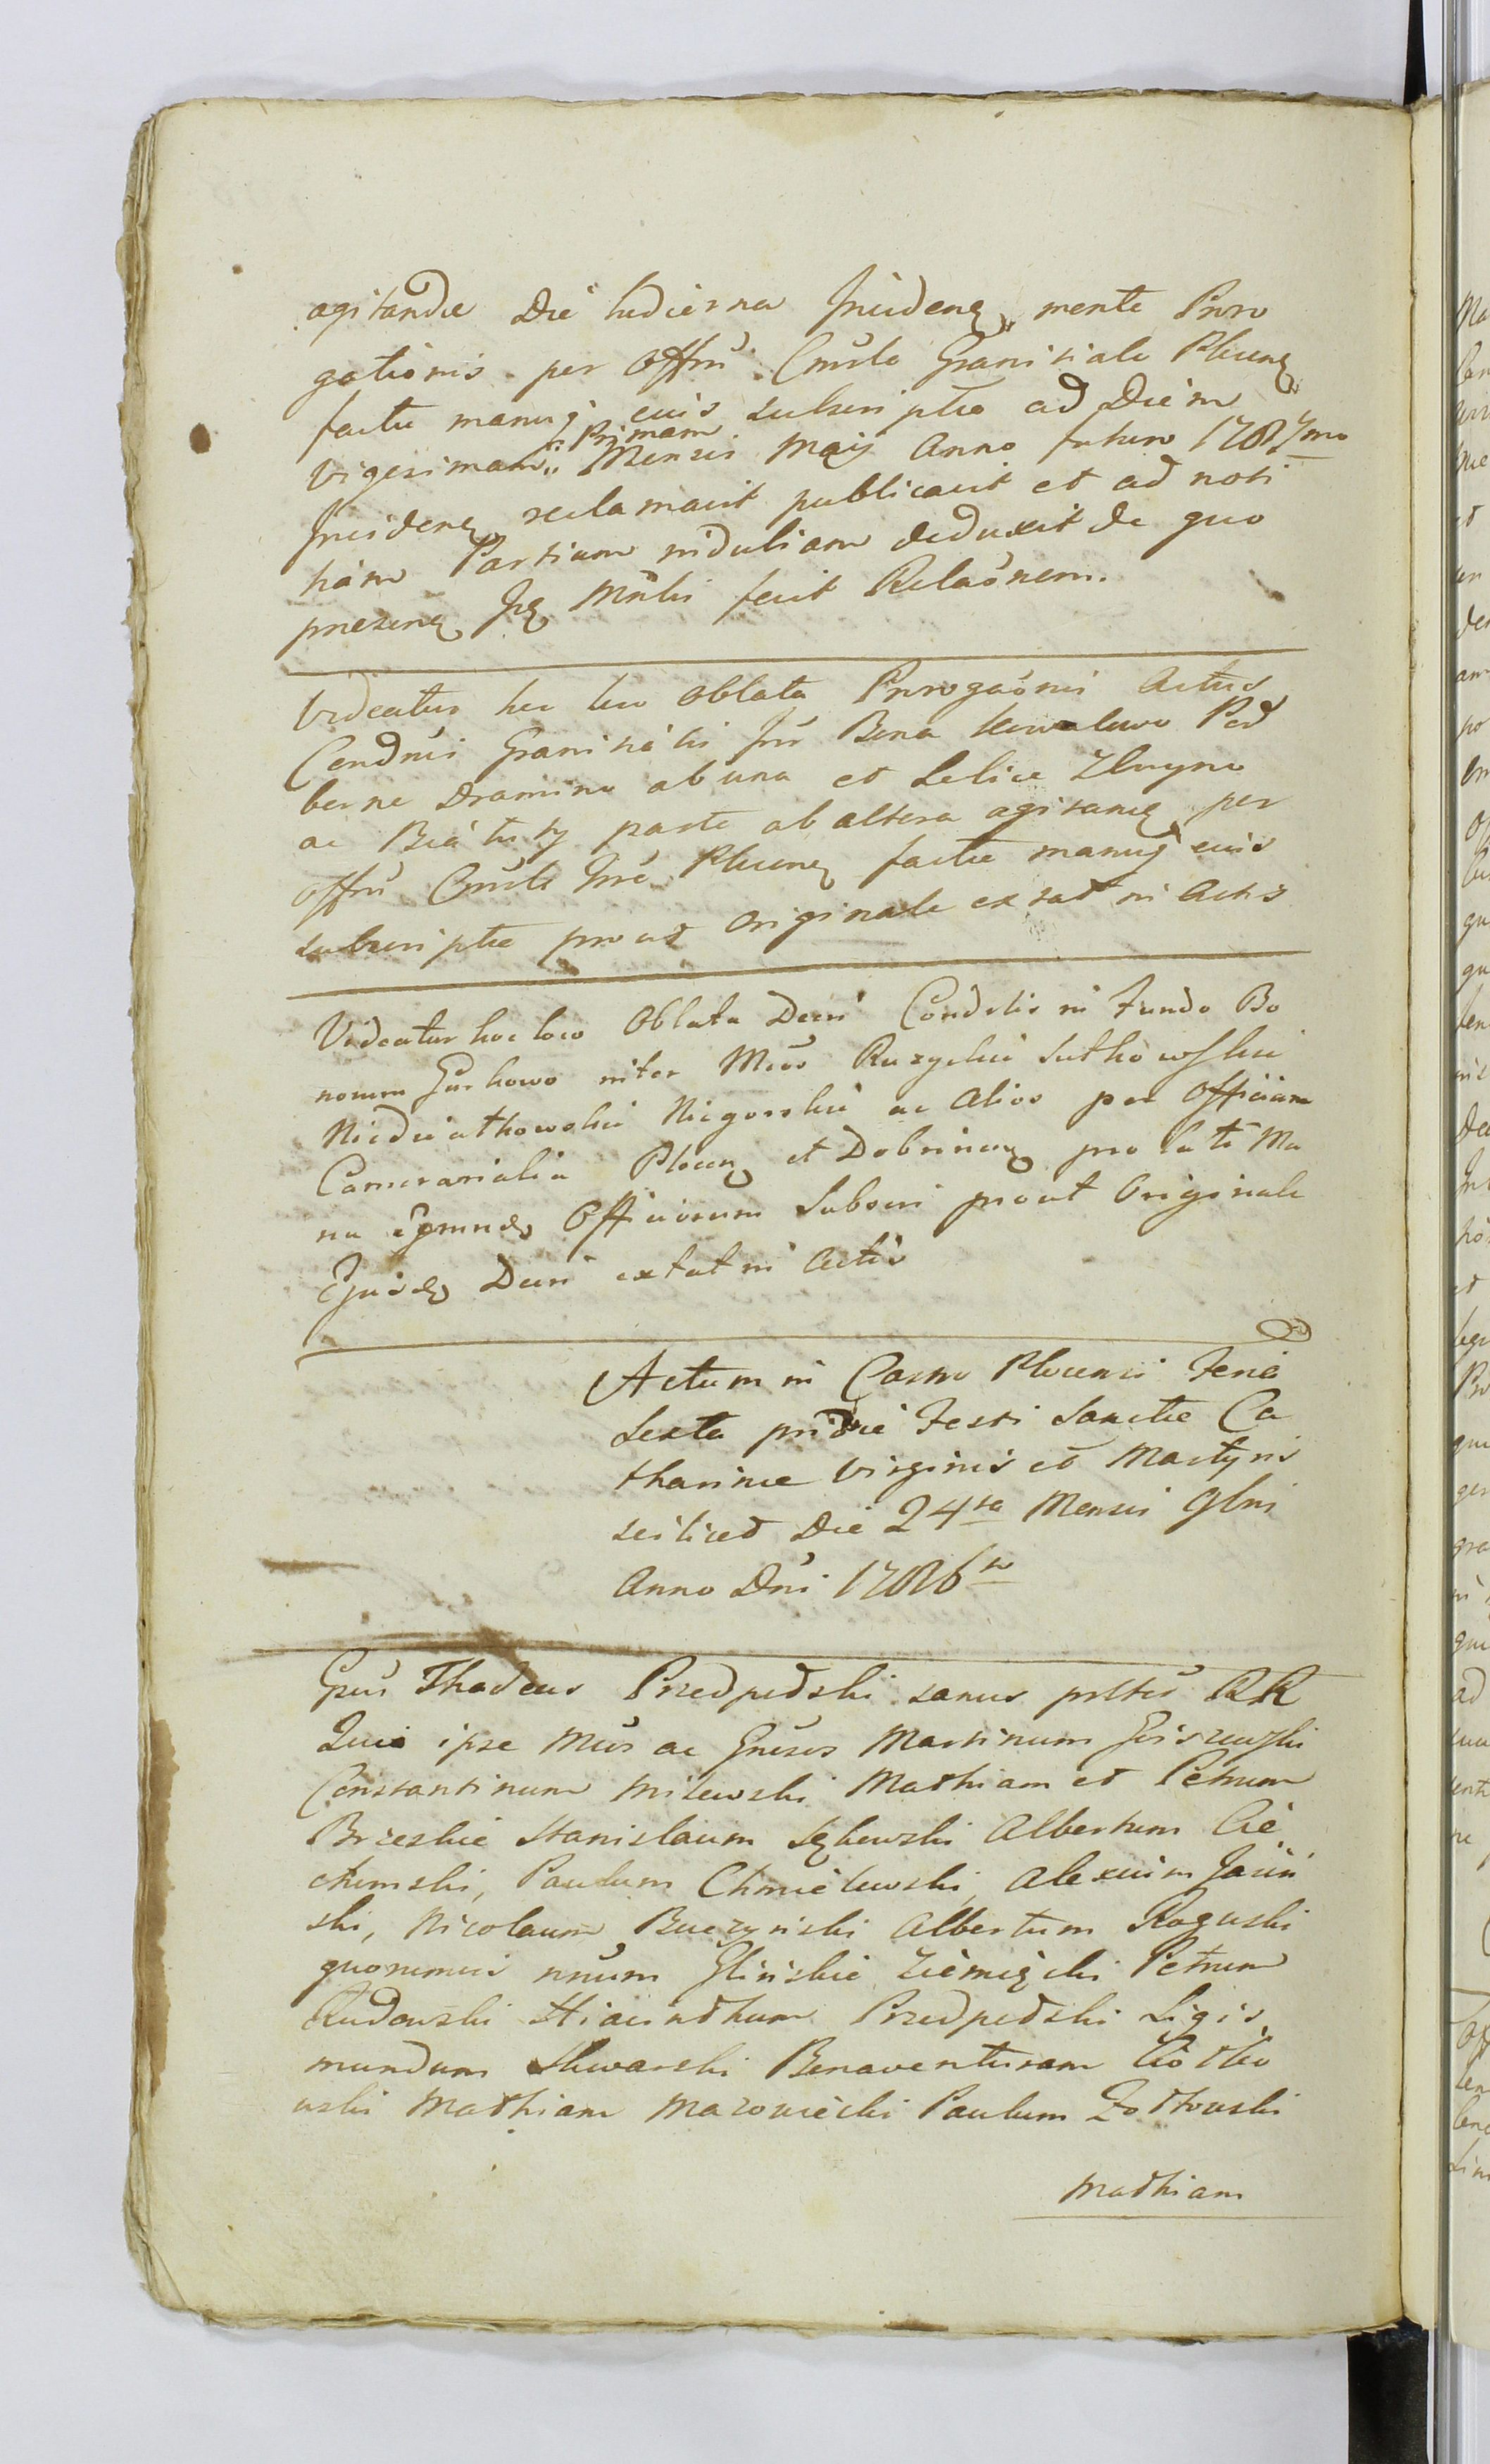 agitandæ Die hodierna Inciden mente Proro
gationis per Offm Cmrle Granitiale Plocen
factæ manuq eius subscriptæ ad Diem
Vigesimam Primam Mensis Maij Anno futuro 1787mo
Inciden reclamavit publicavit et ad noti
tiam Partium ridulium deduxit de quo
presens Jq Mnlis fecit Relaõnem.
Videatur hic loco Oblata Prorogaõnis Actus
Condnis Granitialis Inr Bona Kowalewo Pod
borne Dramino ab una et Lelice Zbuyno
ac Białuty parte ab altera agitan per
Offm Cmrle Gnre Plocen factæ manuq eius
subscriptæ prout Originale extat in Actis
Videatur hoc loco Oblata Decri Condlis in Fundo Bo
norum Gurkowo inter Mcos Ruzyckie Sutkowskie
Niedziałkowskie Niegorskie ac Alios per Officium
Camerarialia Plocen et Dobrinen pro lati Ma
nu Eormndq Officiorum Subscri prout Originale
Ejusdq Decri extat in Actis
Actum in Castro Plocensi Feria
Sexta pridie Festi Sanctæ Ca
tharinæ Virginis et Martyris
scilicet Die 24ta Mensis 9bris
Anno Dni 1786to
Gsus Thadeus Przedpedski sanus prlter RR
Quia ipse Mcos ac Gnesos Martinum Giszewski
Constantinum Milewski Mathiam et Petrum
Brzeskie Stanislaum Sękowski Albertum Cie
chomski, Paulum Chmielewski, Alexium Jasiń
ski, Nicolaum Buczyński Albertum Roguski
quoremcis nnum Glińskie Ziemięcki Petrum
Rudowski Hiacinthum Przedpedski Sigis
mundum Skwarski Bonaventuram Ciołko
wski Mathiam Mazowiecki Paulum Zołtowski
Mathiam